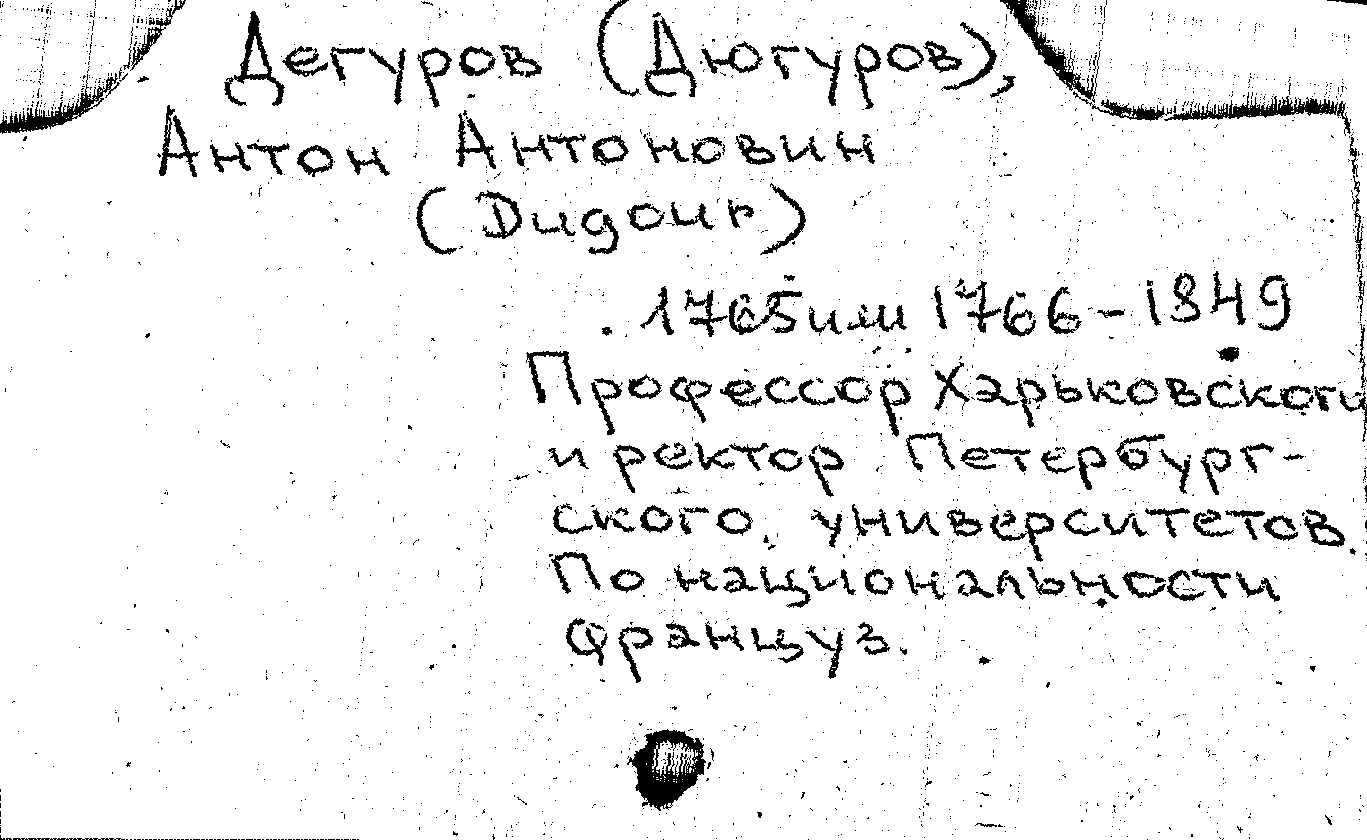 Дегуров (Дюгуров),
Антон Антонович
(Dugour)
1765 или 1766-1849
Профессор Харьковского
и ректор Петербург-
ского университетов.
По национальности
француз.